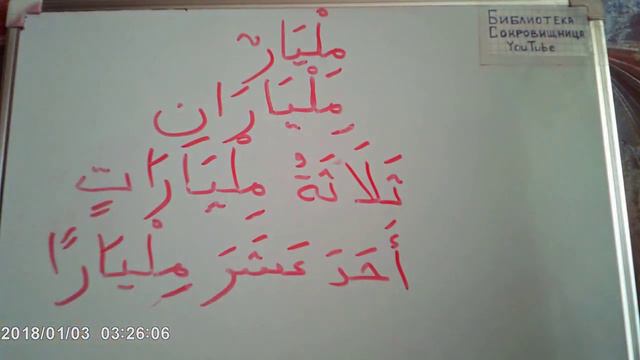 مِلْيَارٌ
مِلْيَارَانِ
ثَلَاثَةُ مِلْيَارَاتٍ
أَحَدَ عَشَرَ مِلْيَارًا
Библиотека
Сокровищница
YouTube
2018/01/03 03:26:06